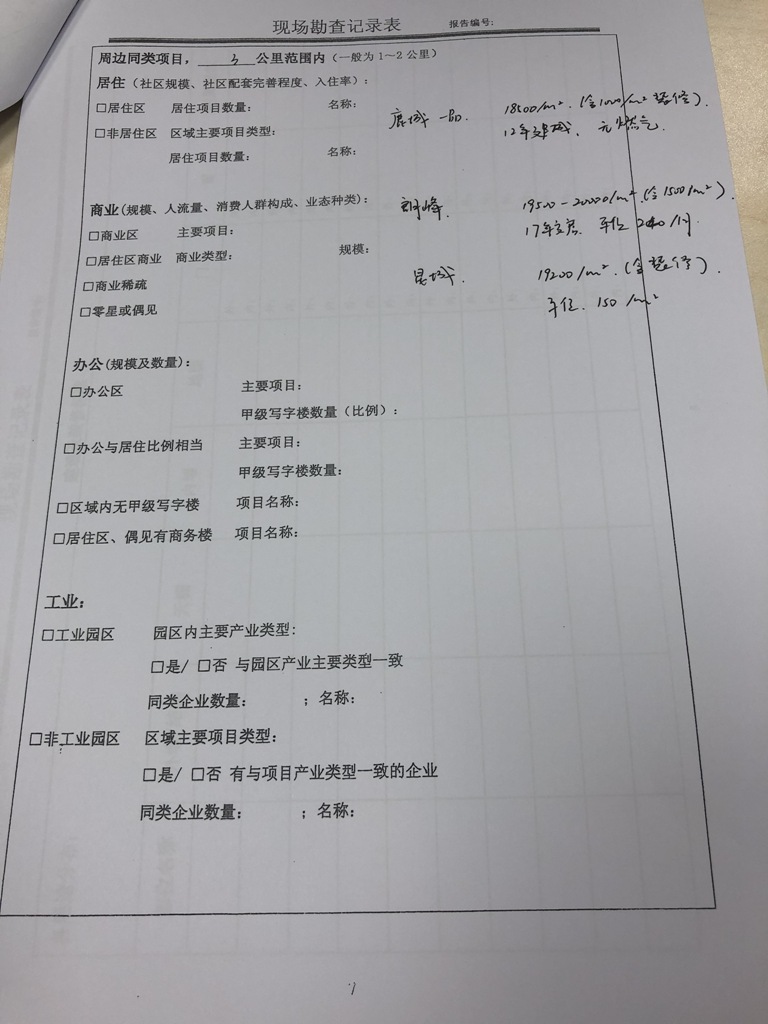 现场勘查记录表 报告编号:
周边同类项目, 3 公里范围内(一般为1~2公里)
居住(社区规模、社区配套完善程度、入住率):
□居住区 居住项目数量: 名称: 鹿城一品 18500/m². (含1000/m²整修).
□非居住区 区域主要项目类型: 12年建成, 无燃气.
居住项目数量: 名称:
商业(规模、人流量、消费人群构成、业态种类): 峰. 19500-20000/m².(含1500/m²).
□商业区 主要项目: 17年交房. 车位
□居住区商业 商业类型: 规模:
□商业稀疏 城. 19200/m². (含整修).
□零星或偶见 车位. 150/m²
办公(规模及数量):
□办公区 主要项目:
甲级写字楼数量(比例):
□办公与居住比例相当 主要项目:
甲级写字楼数量:
□区域内无甲级写字楼 项目名称:
□居住区、偶见有商务楼 项目名称:
工业:
□工业园区 园区内主要产业类型:
□是/ □否 与园区产业主要类型一致
同类企业数量: ; 名称:
□非工业园区 区域主要项目类型:
□是/ □否 有与项目产业类型一致的企业
同类企业数量: ; 名称:
1